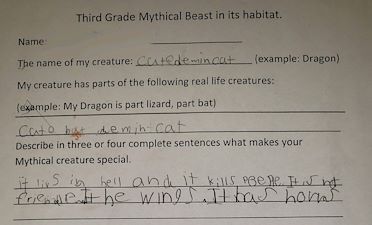 Third Grade Mythical Beast in its habitat.
Name
The name of my creature: (example: Dragon)
My creature has parts of the following real life creatures:
(example: My Dragon is part lizard, part bat)
cat bat demin-cat
Describe in three or four complete sentences what makes your
Mythical creature special.
it livs in hell and it kills It is not
he wings. It has horns